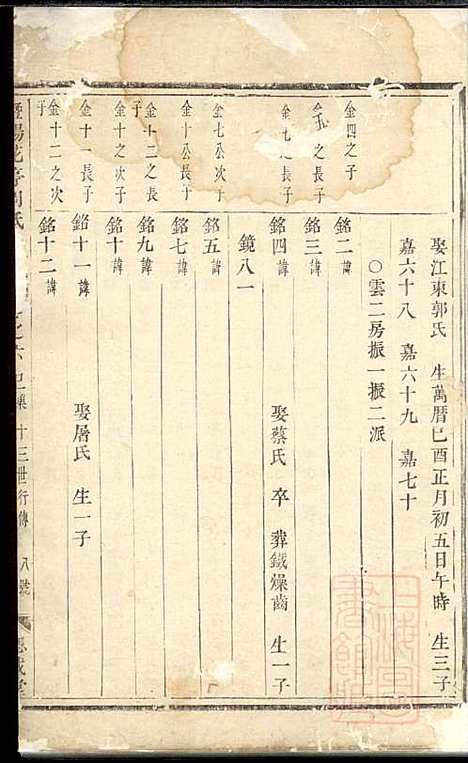 娶江東郭氏 生萬曆己酉正月初五日午時 生三子
嘉六十八 嘉六十九 嘉七十
○雲二房振一振二派
金四之子 銘二諱
金 之長子 銘三諱
金 之長子 銘四諱 娶蔡氏 卒 葬鐵燥齒 生一子
鏡八一
金七公次子 銘五諱
金十公長子 銘七諱
金十二之長子 銘九諱
金十之次子 銘十諱
金十一長子 銘十一諱 娶屠氏 生一子
金十二之次子 銘十二諱
暨陽花亭 氏 之六 十三世行傳 八號